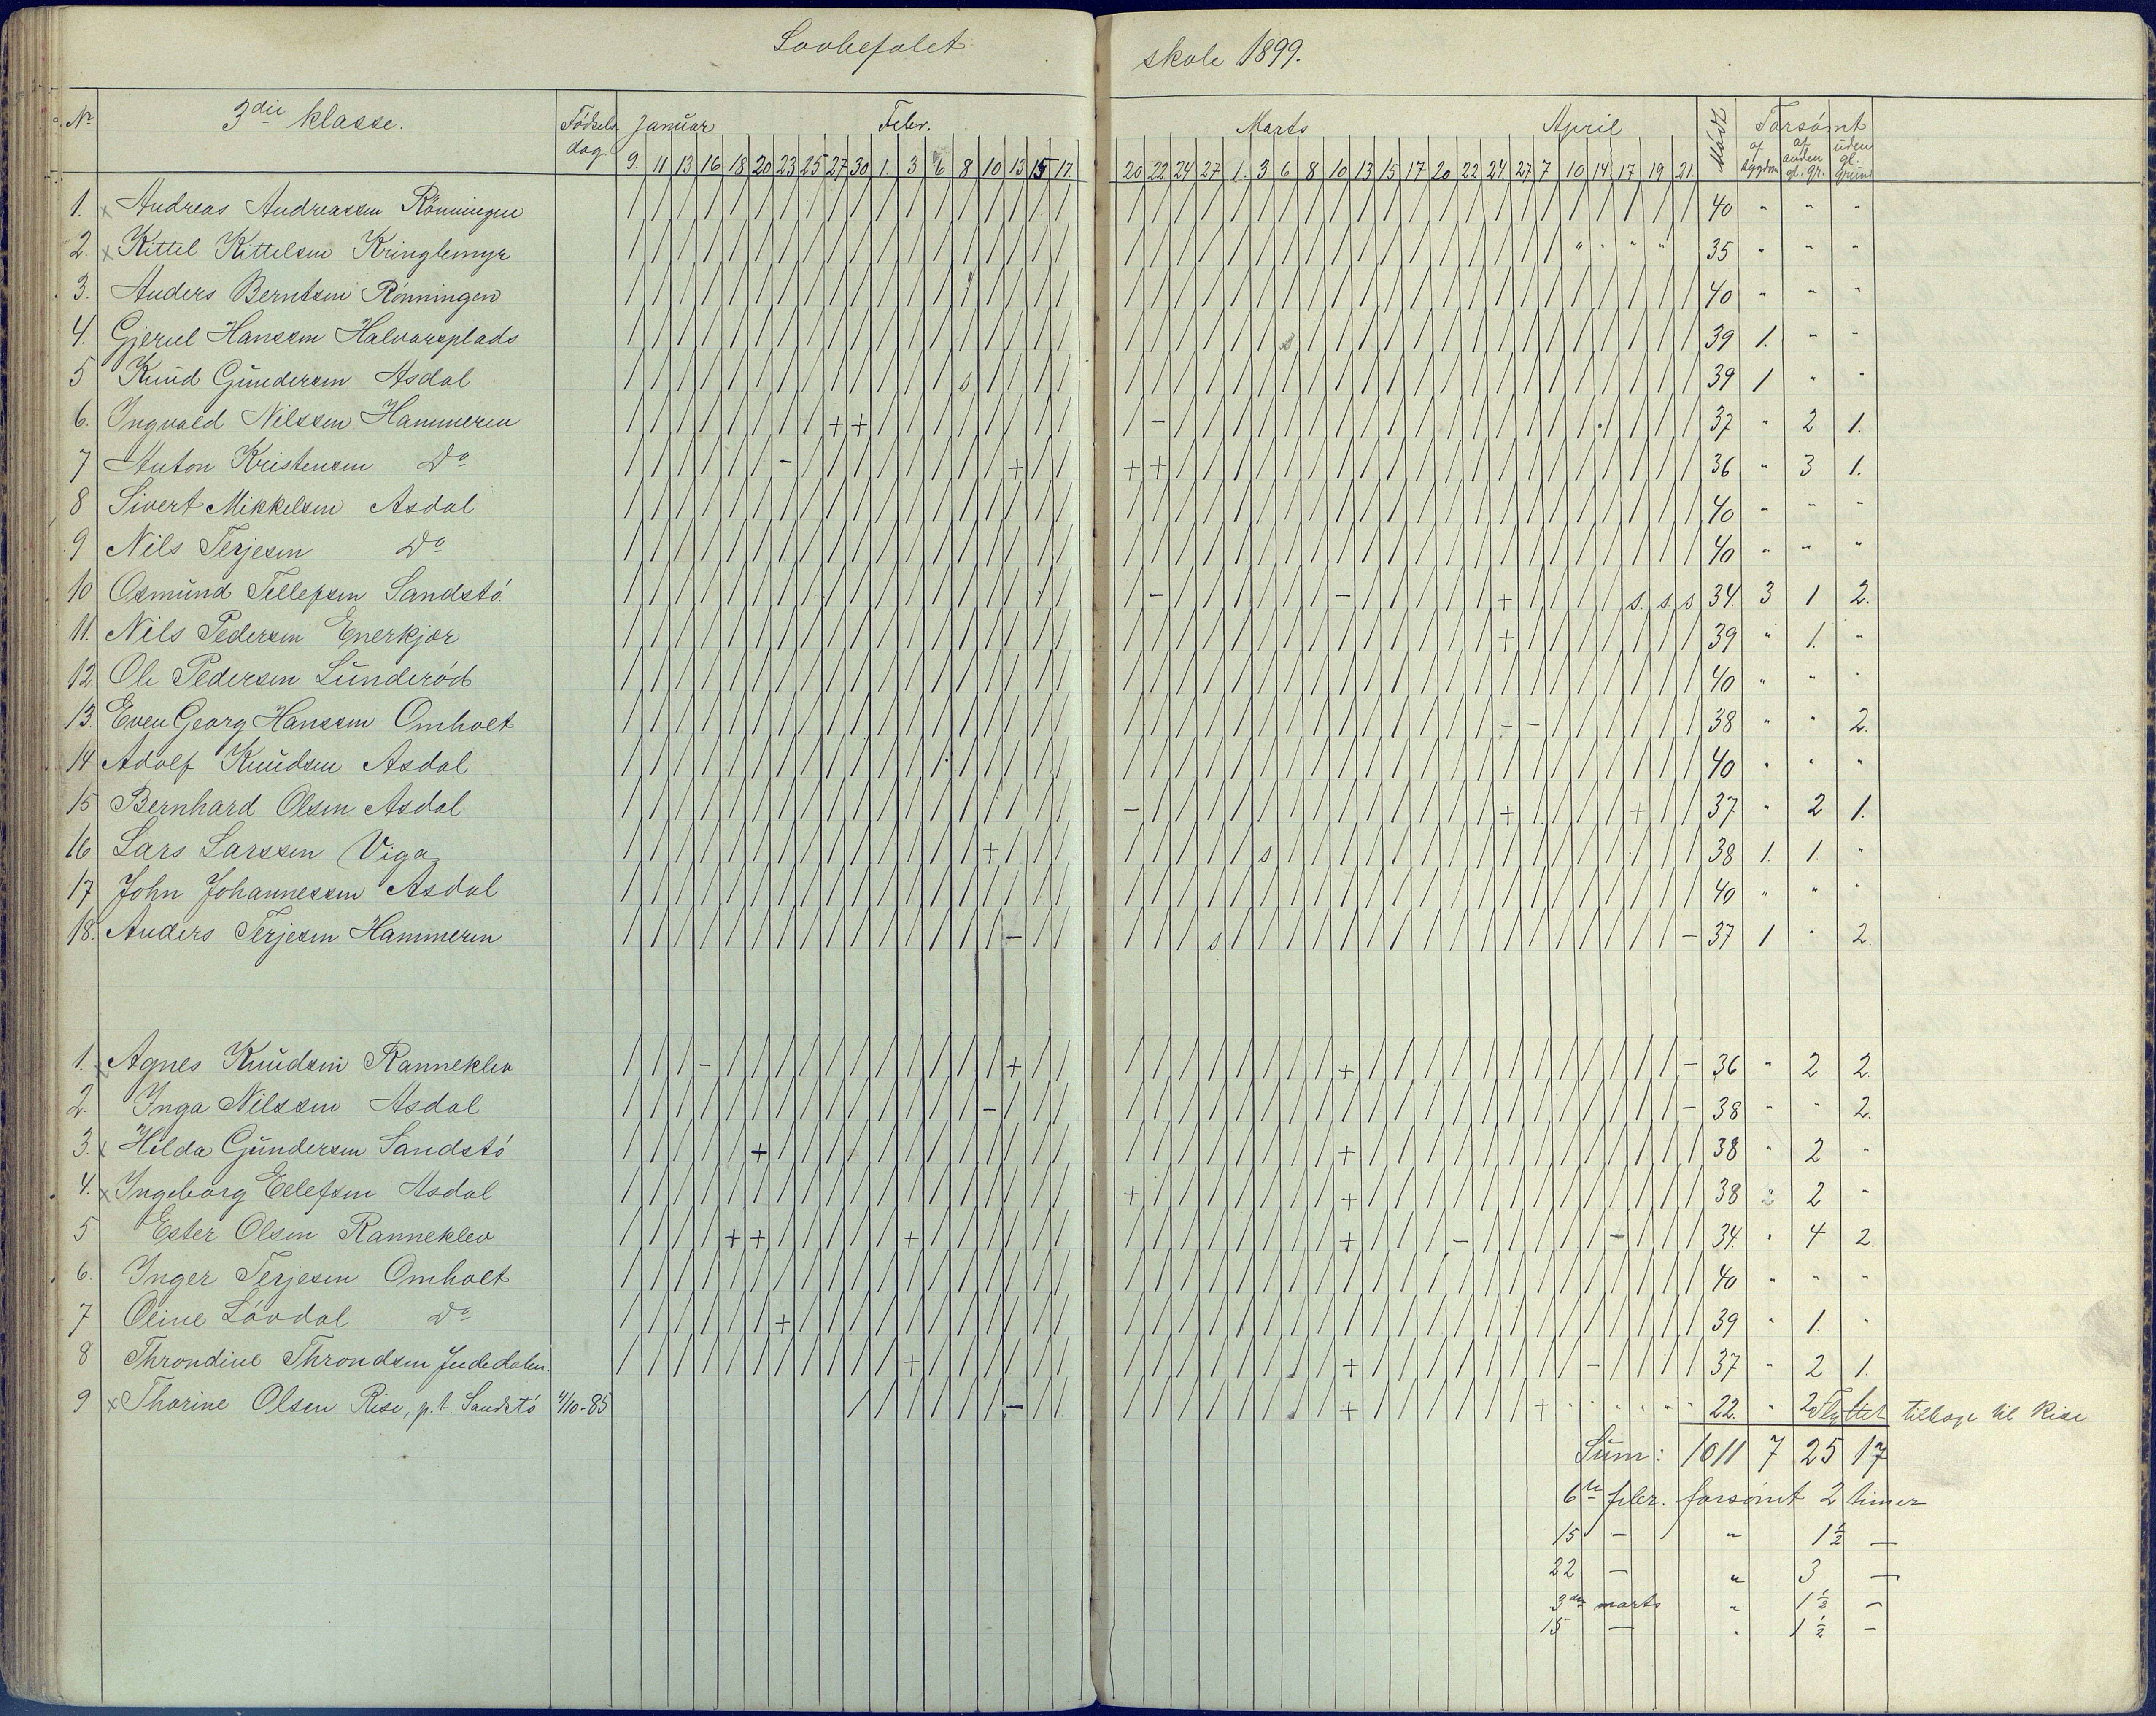 Lovbefalet skole 1899.
Nr 3die klasse. Födsels dag Januar Febr. Marts April Mödt Forsömt
af sygdom af anden gl. gr. uden gl. grund
9. 11 13 16 18 20 23 25 27 30 1. 3 6 8 10 13 15 17. 20 22 24 27 1. 3 6 8 10 13 15 17 20 22 24 27 7 10 14 17 19 21.
1. x Andreas Andreassen Rönningen / / / / / / / / / / / / / / / / / / / / / / / / / / / / / / / / / / / / / / / / 40 " " "
2. x Kittel Kittelsen Kringlemyr / / / / / / / / / / / / / / / / / / / / / / / / / / / / / / / / / / / " " " " 35 " " "
3. Anders Berntsen Rönningen 40 " " "
4. Gjerul Hanssen Halvarsplads 39 1. " "
5 Knud Gundersen Asdal s 39 1 " "
6. Ingvald Nilssen Hammeren + + - 37 " 2 1.
7 Anton Kristensen Do - + + + 36 " 3 1.
8 Sivert Mikkelsen Asdal 40 " " "
9 Nils Terjesen Do 40 " " "
10 Osmund Tellefsen Sandstö - - + s. s. s 34. 3 1 2.
11. Nils Pedersen Enerkjær + 39 " 1. "
12. Ole Pedersen Lunderöd 40 " " "
13. Even Georg Hanssen Omholt - - 38 " " 2.
14 Adolf Knudsen Asdal 40 " " "
15 Bernhard Olsen Asdal - + + 37 " 2 1.
16 Lars Larssen Viga + s 38 1. 1. "
17 John Johannessen Asdal 40 " " "
18. Anders Terjesen Hammeren - s - 37 1 " 2.
1. x Agnes Knudsen Ranneklev - + + - 36 " 2 2.
2. Inga Nilssen Asdal - - 38 " " 2.
3. x Hilda Gundersen Sandstö + + 38 " 2 "
4. x Ingeborg Ellefsen Asdal + + 38 2 "
5 Ester Olsen Ranneklev + + + + - - 34. " 4 2.
6. Inger Terjesen Omholt 40 " " "
7 Oline Lövdal Do + 39 " 1. "
8 Throndine Throndsen Indedalen. + + - 37 " 2 1.
9 x Thorine Olsen Rise, p.t. Sandstö 4/10-85 - + + " " " " " 22. " 2 Flyttet tilbage til Rise
Sum: 1011 7 25 17
6te febr. forsömt 2 timer
15 - " 1½ -
22 - " 3 -
3die marts " 1½ -
15 - " 1½ -